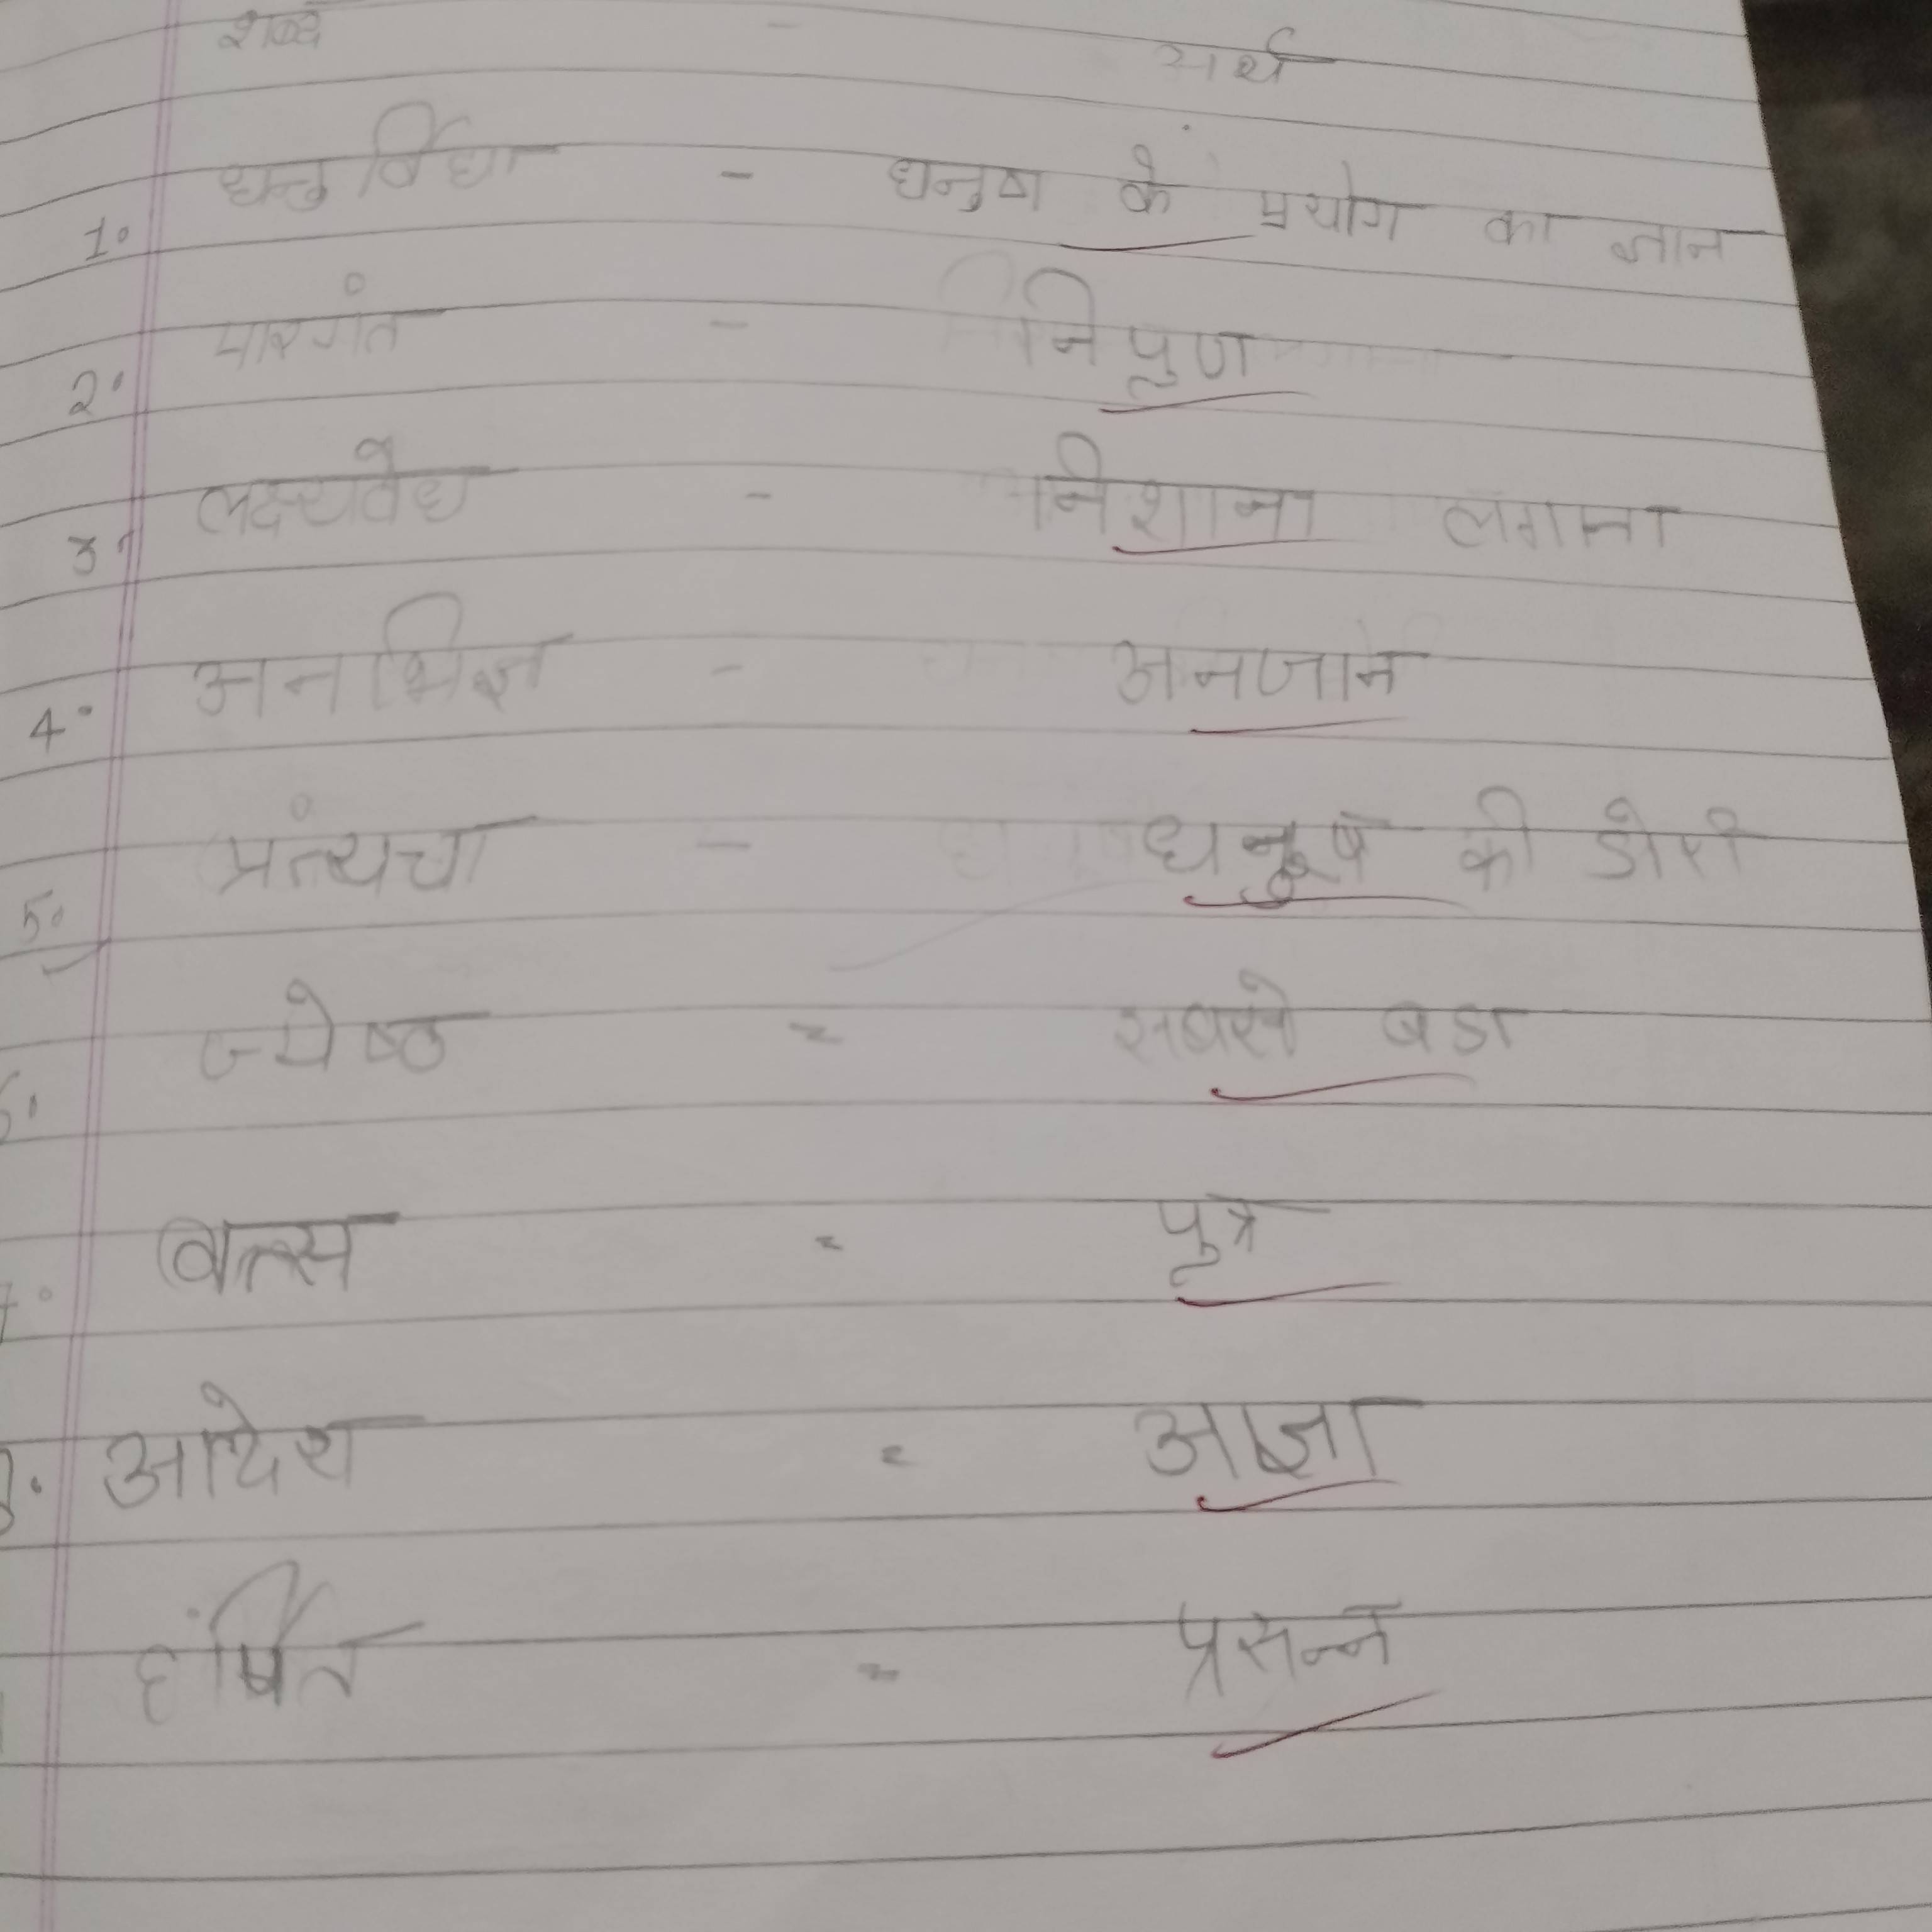 शब्द - अर्थ
1. धनुर्विद्या - धनुष के प्रयोग का ज्ञान
2. पारगंत - निपुण
3. लक्ष्यवेध - निशाना लगाना
4. अनभिज्ञ - अनजान
5. प्रंत्यचा - धनुष की डोरी
6. ज्येष्ठ = सबसे बडा
7. वत्स = पुत्र
8. आदेश = आज्ञा
हंर्षित = प्रसन्न